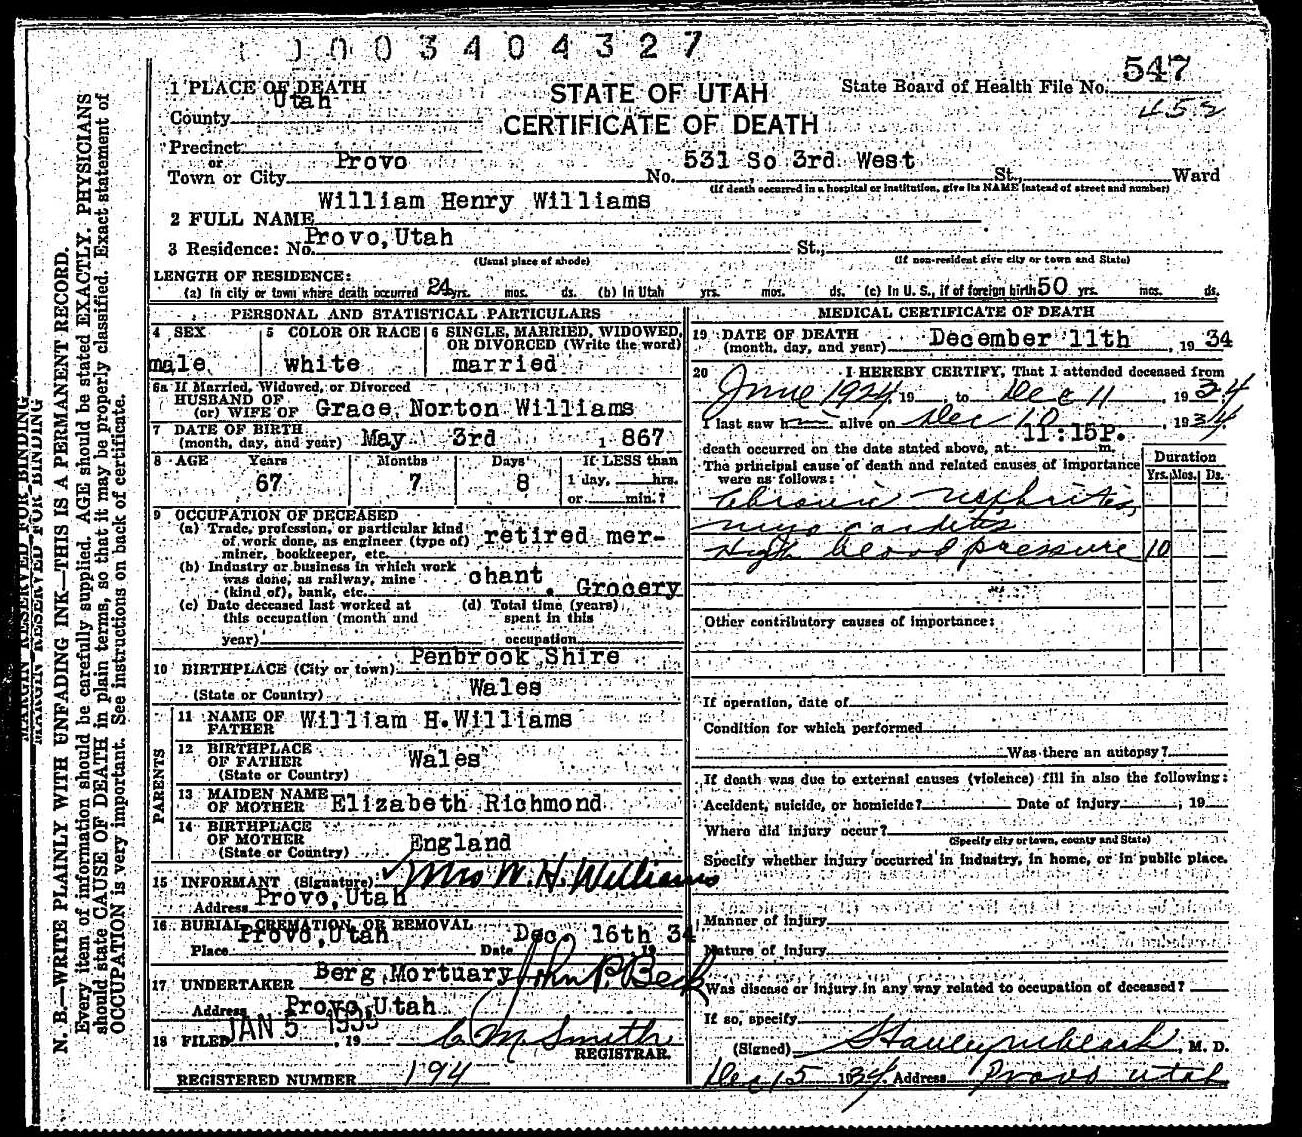 0003404327
1 PLACE OF DEATH
County Utah
STATE OF UTAH
CERTIFICATE OF DEATH
State Board of Health File No. 547
452
Precinct
or
Town or City Provo No. 531 So 3rd West St., Ward
(If death occurred in a hospital or institution, give its NAME instead of street and number)
2 FULL NAME William Henry Williams
3 Residence: No. Provo, Utah St.,
(Usual place of abode) (If non-resident give city or town and State)
LENGTH OF RESIDENCE:
(a) In city or town where death occurred 24 yrs. mos. ds. (b) In Utah yrs. mos. ds. (c) In U. S., if of foreign birth 50 yrs. mos. ds.
PERSONAL AND STATISTICAL PARTICULARS
4 SEX male
5 COLOR OR RACE white
6 SINGLE, MARRIED, WIDOWED, OR DIVORCED (Write the word) married
6a If Married, Widowed, or Divorced
HUSBAND OF
(or) WIFE OF Grace Norton Williams
7 DATE OF BIRTH
(month, day, and year) May 3rd 1867
8 AGE Years Months Days If LESS than
67 7 8 1 day, hrs.
or min.?
9 OCCUPATION OF DECEASED
(a) Trade, profession, or particular kind
of work done, as engineer (type of) retired mer-
miner, bookkeeper, etc.
(b) Industry or business in which work
was done, as railway, mine chant.
(kind of), bank, etc. Grocery
(c) Date deceased last worked at
this occupation (month and
year)
(d) Total time (years)
spent in this
occupation
10 BIRTHPLACE (City or town) Penbrook Shire
(State or Country) Wales
PARENTS
11 NAME OF
FATHER William H. Williams
12 BIRTHPLACE
OF FATHER Wales
(State or Country)
13 MAIDEN NAME
OF MOTHER Elizabeth Richmond
14 BIRTHPLACE
OF MOTHER England
(State or Country)
15 INFORMANT (Signature) Mrs W. H. Williams
Address Provo, Utah
16 BURIAL, CREMATION, OR REMOVAL
Place Provo, Utah Date Dec. 16th 19 34
17 UNDERTAKER Berg Mortuary John P. Beck
Address Provo, Utah
18 FILED JAN 5 1935, 19 C M Smith
REGISTRAR.
REGISTERED NUMBER 194
MEDICAL CERTIFICATE OF DEATH
19 DATE OF DEATH
(month, day, and year) December 11th, 19 34
20 I HEREBY CERTIFY, That I attended deceased from
June 1924, 19 , to Dec 11, 19 34
I last saw h alive on Dec 10, 19 34
death occurred on the date stated above, at 11:15P. m.
The principal cause of death and related causes of importance
were as follows:
Duration
Yrs. Mos. Ds.
Chronic nephritis,
myo carditis
High blood pressure 10
Other contributory causes of importance:
If operation, date of
Condition for which performed
Was there an autopsy?
If death was due to external causes (violence) fill in also the following:
Accident, suicide, or homicide? Date of injury , 19
Where did injury occur?
(Specify city or town, county and State)
Specify whether injury occurred in industry, in home, or in public place.
Manner of injury
Nature of injury
Was disease or injury in any way related to occupation of deceased?
If so, specify
(Signed) , M. D.
Dec 15 1934. Address Provo Utah
MARGIN RESERVED FOR BINDING
MARGIN RESERVED FOR BINDING
N. B.—WRITE PLAINLY WITH UNFADING INK—THIS IS A PERMANENT RECORD.
Every item of information should be carefully supplied. AGE should be stated EXACTLY. PHYSICIANS
should state CAUSE OF DEATH in plain terms, so that it may be properly classified. Exact statement of
OCCUPATION is very important. See instructions on back of certificate.